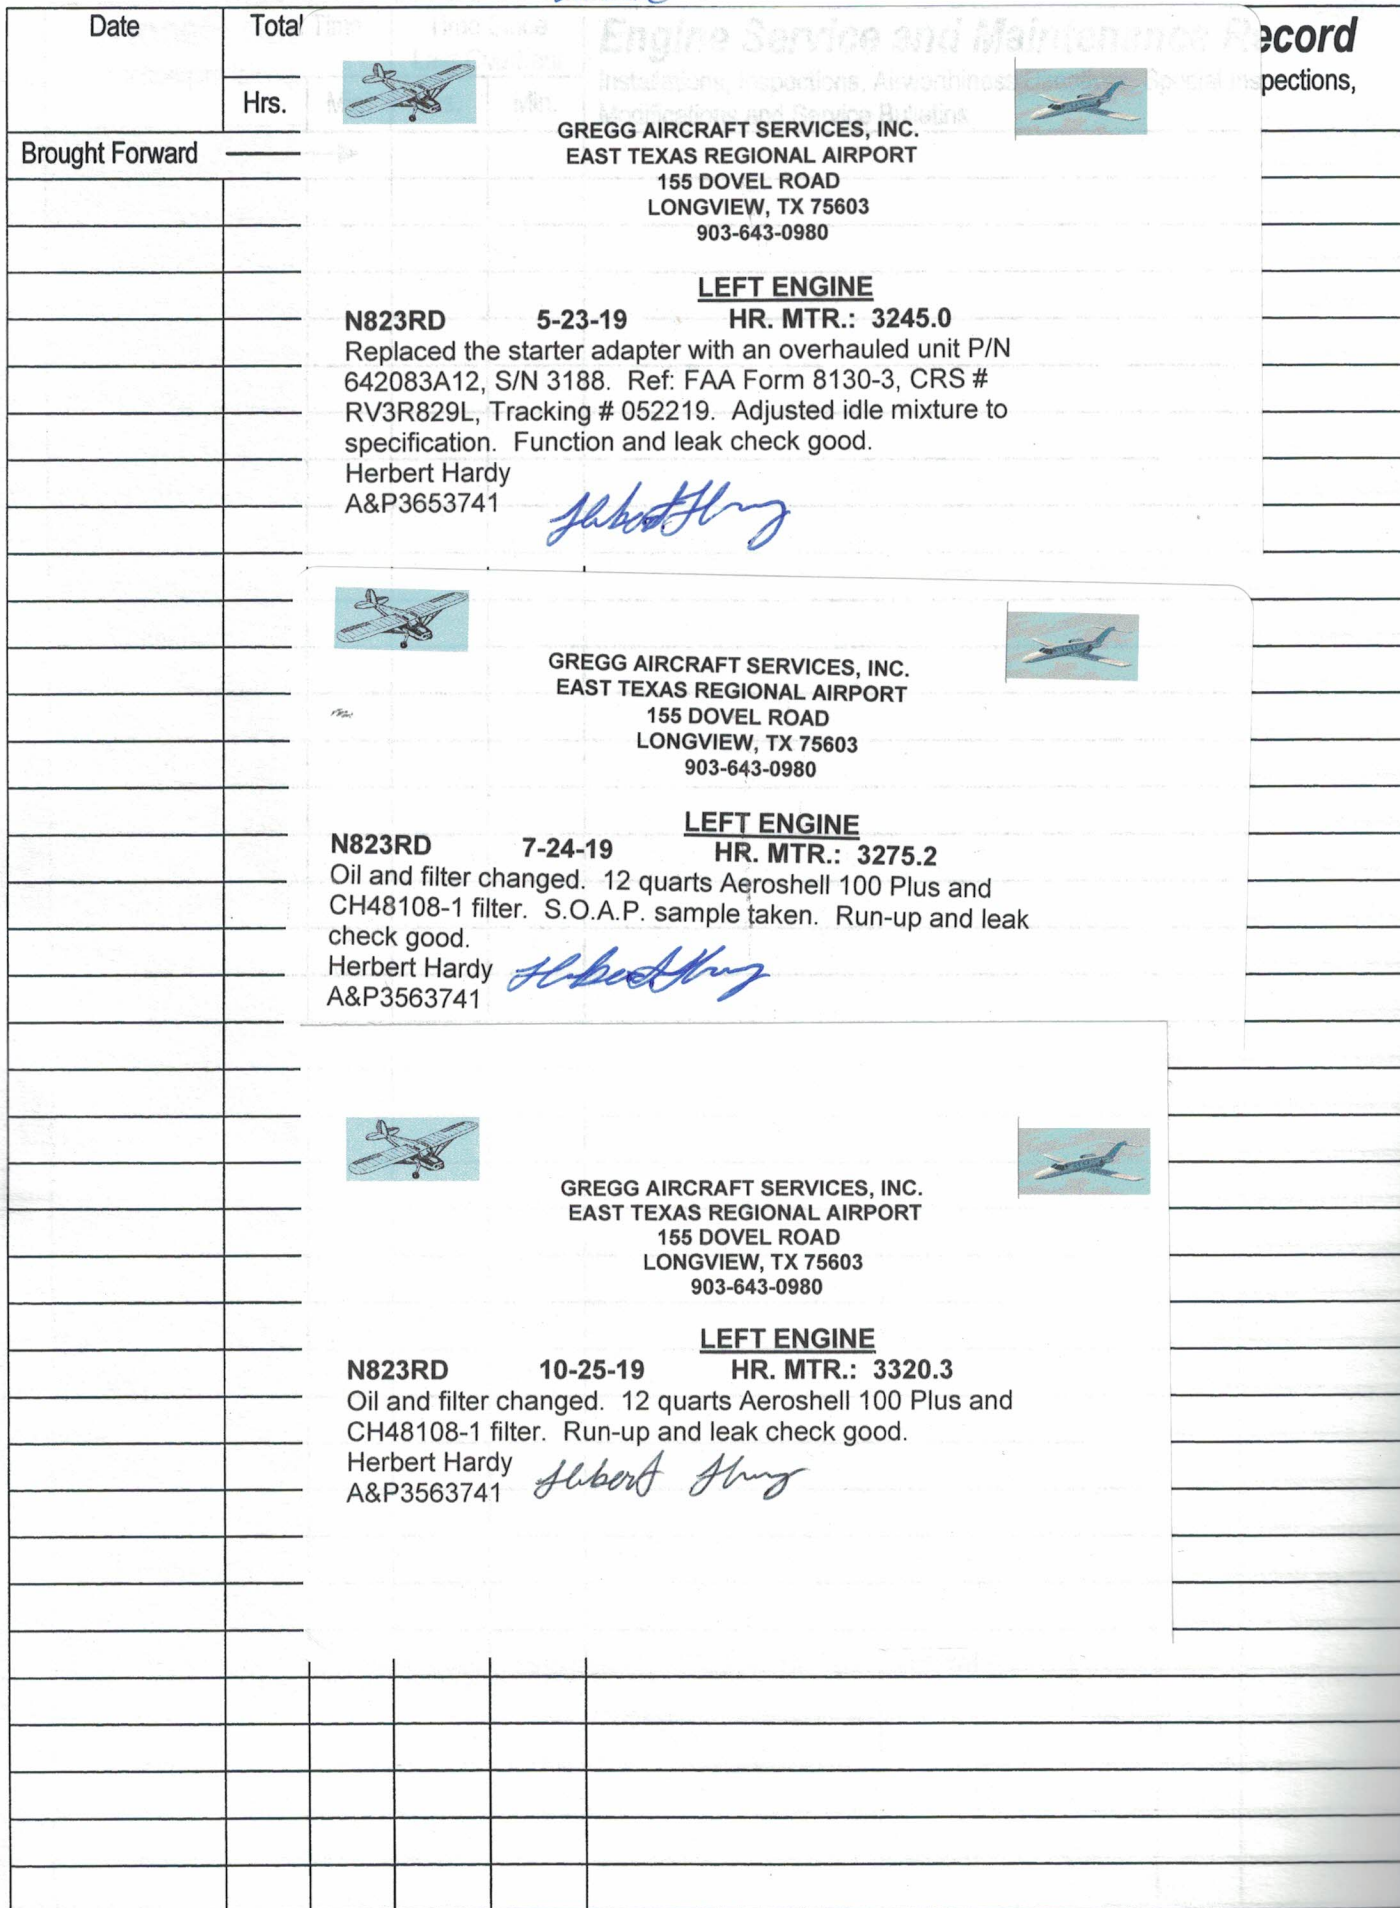 Date
Total Time
Time Since
Engine Service and Maintenance Record
Installations, Inspections, Airworthiness Directives, Special Inspections,
Hrs.
Min.
Modifications and Service Bulletins
Brought Forward
GREGG AIRCRAFT SERVICES, INC.
EAST TEXAS REGIONAL AIRPORT
155 DOVEL ROAD
LONGVIEW, TX 75603
903-643-0980
LEFT ENGINE
N823RD 5-23-19 HR. MTR.: 3245.0
Replaced the starter adapter with an overhauled unit P/N
642083A12, S/N 3188. Ref: FAA Form 8130-3, CRS #
RV3R829L, Tracking # 052219. Adjusted idle mixture to
specification. Function and leak check good.
Herbert Hardy
A&P3653741
GREGG AIRCRAFT SERVICES, INC.
EAST TEXAS REGIONAL AIRPORT
155 DOVEL ROAD
LONGVIEW, TX 75603
903-643-0980
LEFT ENGINE
N823RD 7-24-19 HR. MTR.: 3275.2
Oil and filter changed. 12 quarts Aeroshell 100 Plus and
CH48108-1 filter. S.O.A.P. sample taken. Run-up and leak
check good.
Herbert Hardy
A&P3563741
GREGG AIRCRAFT SERVICES, INC.
EAST TEXAS REGIONAL AIRPORT
155 DOVEL ROAD
LONGVIEW, TX 75603
903-643-0980
LEFT ENGINE
N823RD 10-25-19 HR. MTR.: 3320.3
Oil and filter changed. 12 quarts Aeroshell 100 Plus and
CH48108-1 filter. Run-up and leak check good.
Herbert Hardy
A&P3563741